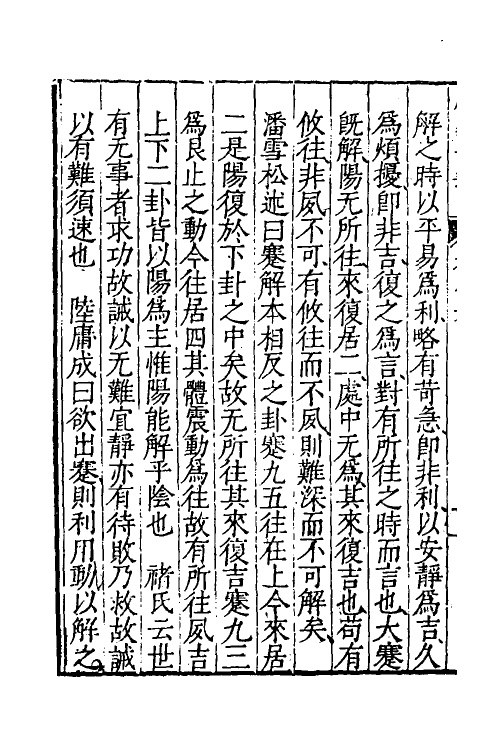 解之時以平易爲利、略有苛急、卽非利、以安靜爲吉、久
爲煩擾、卽非吉、復之爲言、對有所往之時而言也、大蹇
旣解、陽无所往、來復居二、處中无爲、其來復吉也、苟有
攸往、非夙不可、有攸往而不夙、則難深而不可解矣、
潘雪松述曰、蹇解本相反之卦、蹇九五往在上、今來居
二、是陽復於下卦之中矣、故无所往、其來復吉、蹇九三
爲艮止之動、今往居四、其體震動爲往、故有所往夙吉
上下二卦皆以陽爲主、惟陽能解乎陰也　禇氏云、世
有无事者求功、故誡以无難宜靜、亦有待敗乃救、故誡
以有難須速也　陸庸成曰、欲出蹇、則利用動、以解之